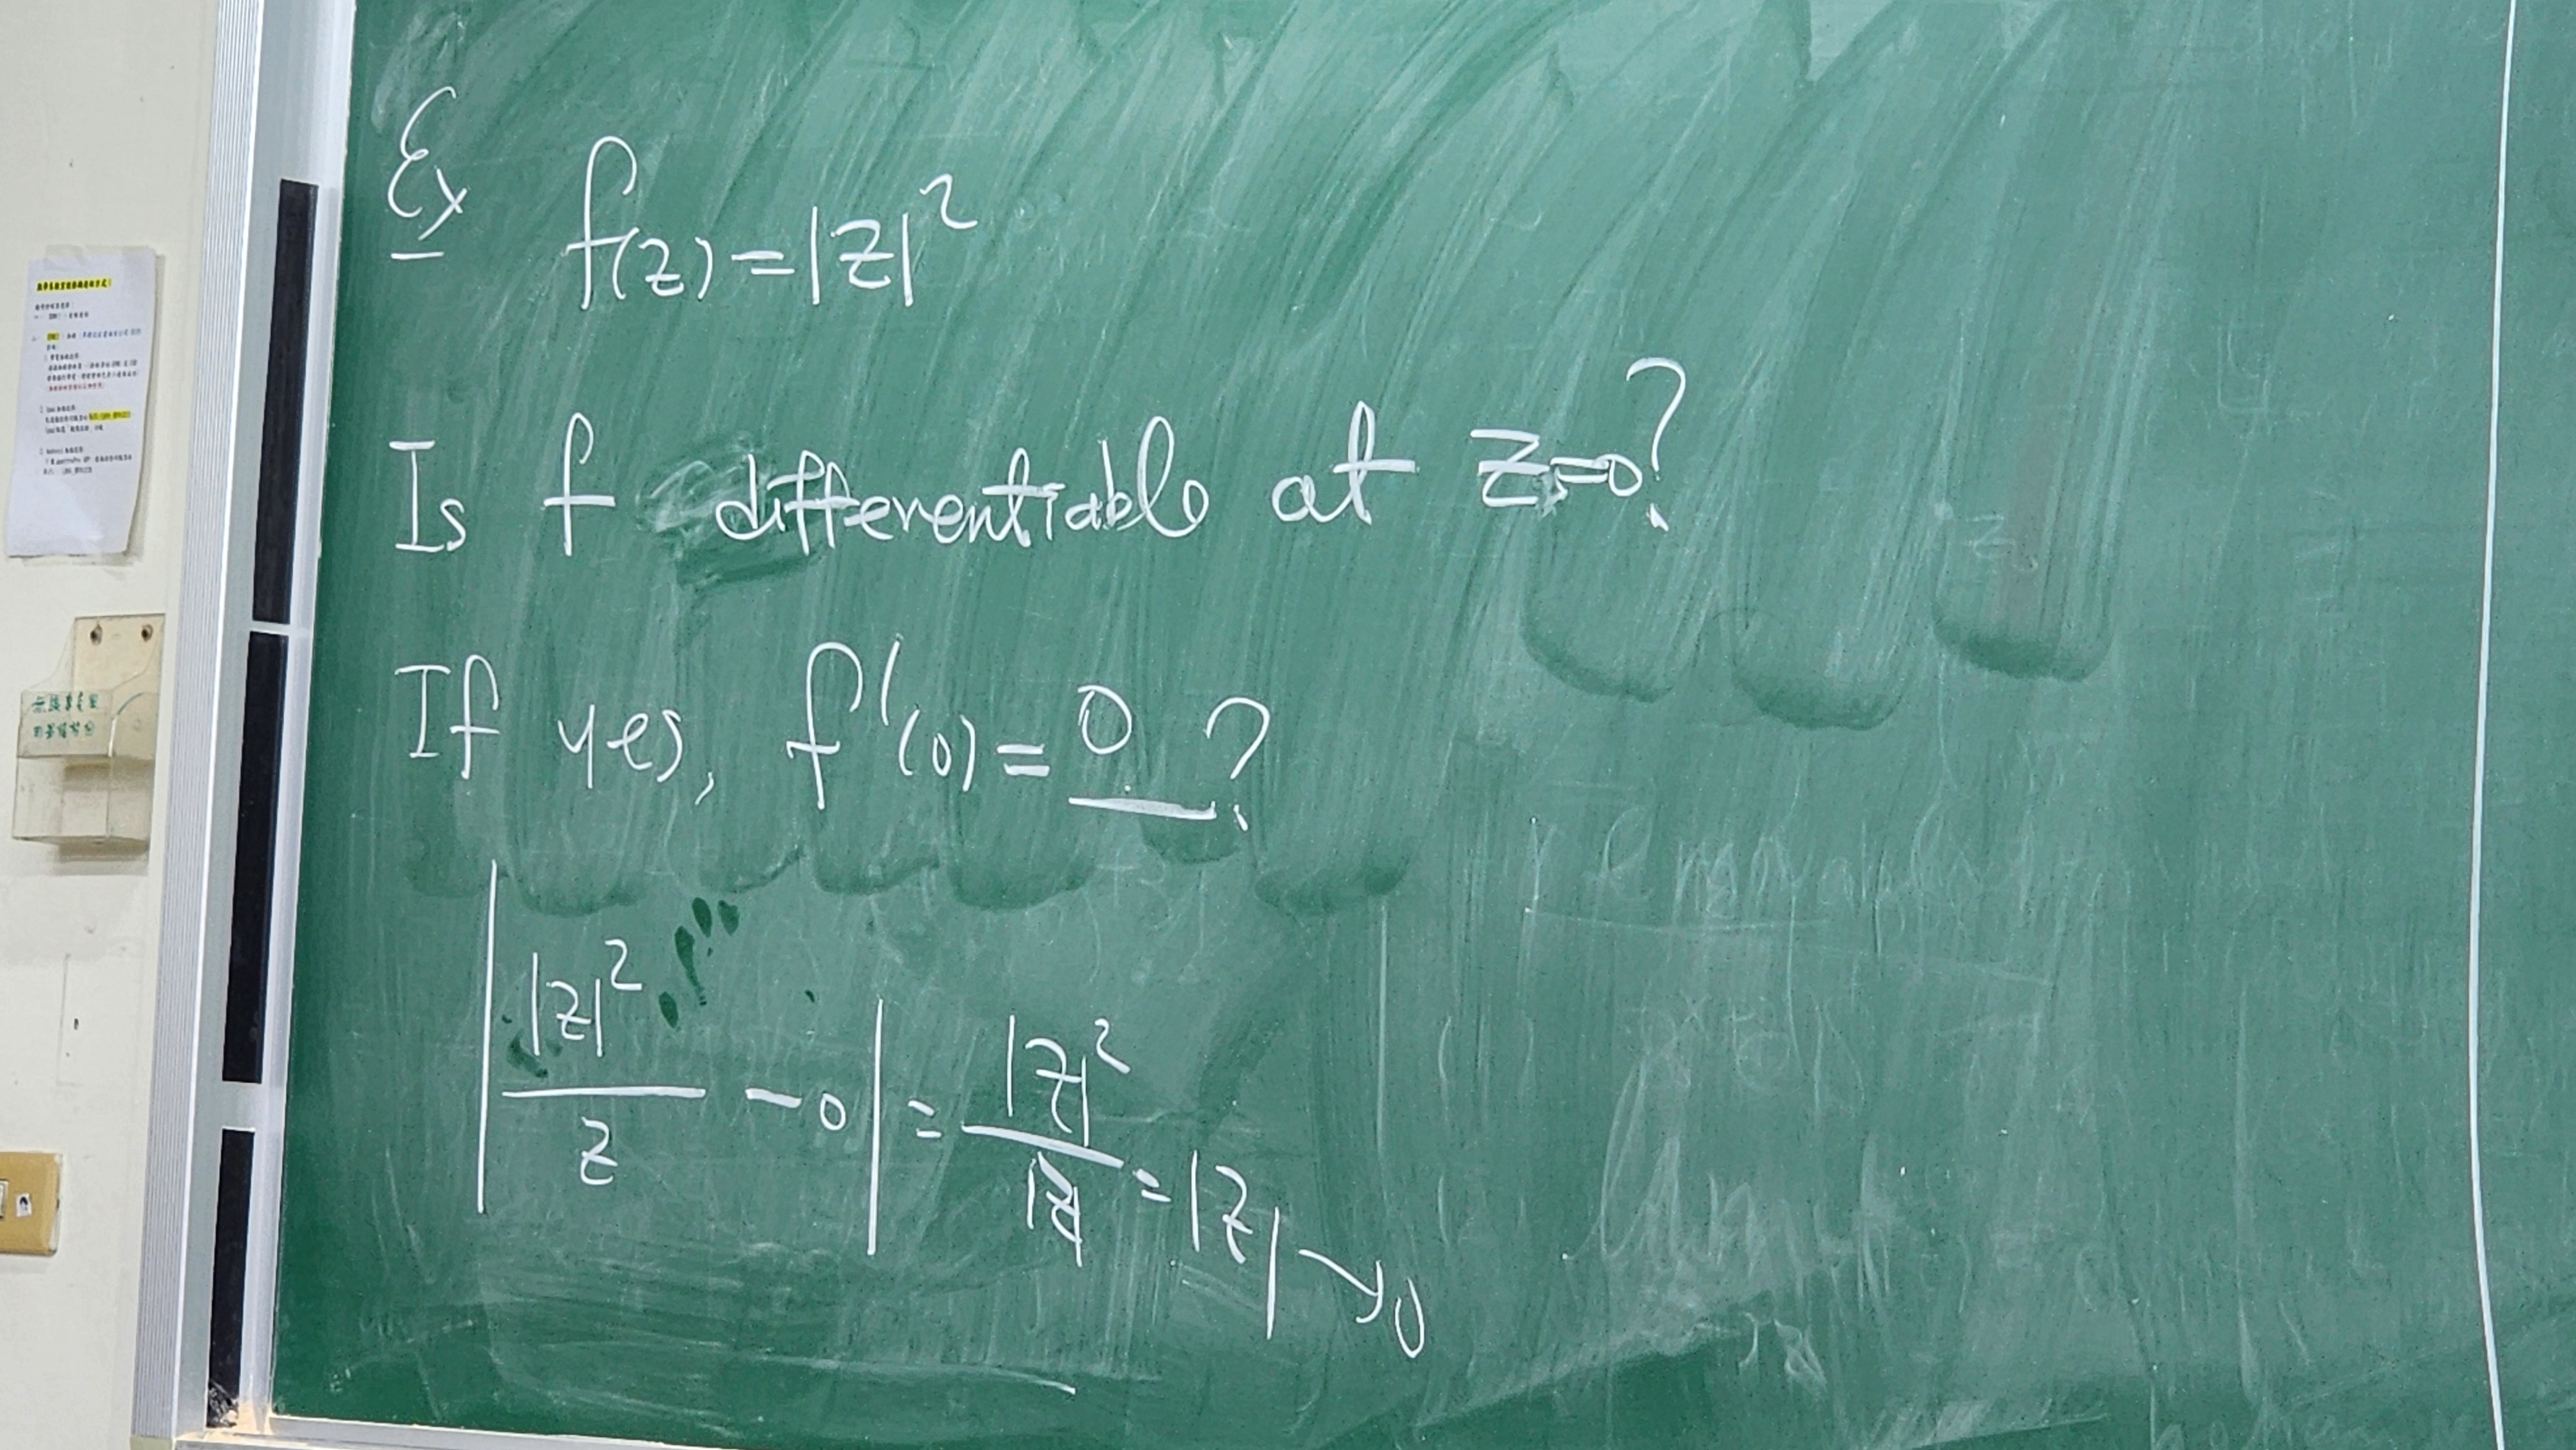 Ex f(z)=|z|²
Is f differentiable at z=0?
If yes, f'(0)=0?
| |z|²/z - 0 | = |z|²/|z| = |z| → 0